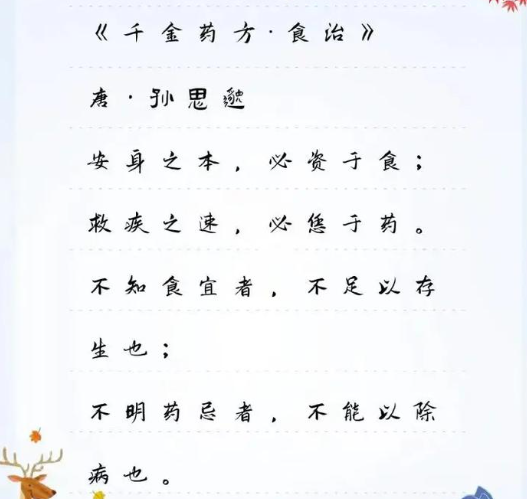 《千金药方·食治》
唐·孙思邈
安身之本，必资于食；
救疾之速，必恁于药。
不知食宜者，不足以存
生也；
不明药忌者，不能以除
病也。